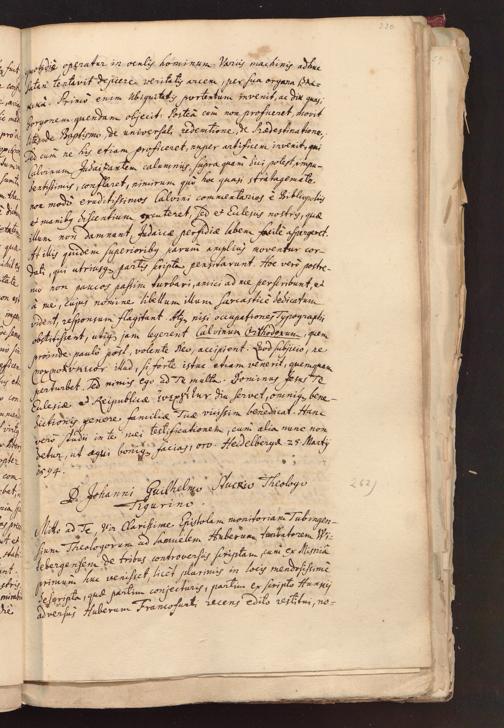 220
operatur in oculis hominum. Variis machinis adhuc
satan tentavit dejicere veritatis arcem, per sua organa
Primò enim Ubiquitatis portentum invenit, ac diu quasi
gorgonem quendam objecit. Posteà cùm non proficeret, movit
de Baptismo, de universali redemtione, de Praedestinatione.
Sed cum ne his etiam proficeret, nuper artificem invenit, qui
Calvinum Judaizantem calumniis, supra quàm dici potest, impu-
dentissimis, conflaret, nimirum quò hoc quasi stratagemate
non modò eruditissimos Calvini commentarios è Bibliopoliis
et manibus discentium excuteret, sed et Ecclesias nostras, quae
illum non damnant Judaicae perfidiae labem facilè aspergeret.
At illis quidem superioribus parum amplius moventur cor-
dati, qui utriusque partis scripta pensitarunt. Hoc verò postre-
mo non paucos passim turbari, amici ad me perscribunt, et
à me, cujus nomine libellum illum sarcasticè dedicatum
vident, responsum flagitant. Atque nisi occupationes Typographi
obstitissent, utique jam legerent Calvinum Orthodoxum, quem
proinde paulò post, volente Deo, accipient. Quod subjicio, ne
illud, si forte istuc etiam venerit, quemquam
perturbet. Sed nimis ego ad Te multa. Dominus Jesus Te
Ecclesiae et Reipublicae diu servet, omnique bene-
dictionis genere familiae Tuae vicissim benedicat. Hanc
verò studii in te mei testificationem, cum alia nunc non
detur, ut aequi bonique facias, oro. Heidelbergae 25 Martii
1594.
D. Johanni Guilhelmo Stuckio Theologo
Tigurino.
262)
Mitto ad Te, Vir Clarissime, Epistolam monitoriam Tubingen-
sium Theologorum ad Samuelem Huberum turbatorem Wi-
tebergensem de tribus controversis scriptam, cum ex Misnia
primum huc venisset, licèt plurimis in locis mendosissimè
descripta, quae partim conjecturis, partim ex scripto Hunnii
adversus Huberum Francofurti recens edito restitui, ne-